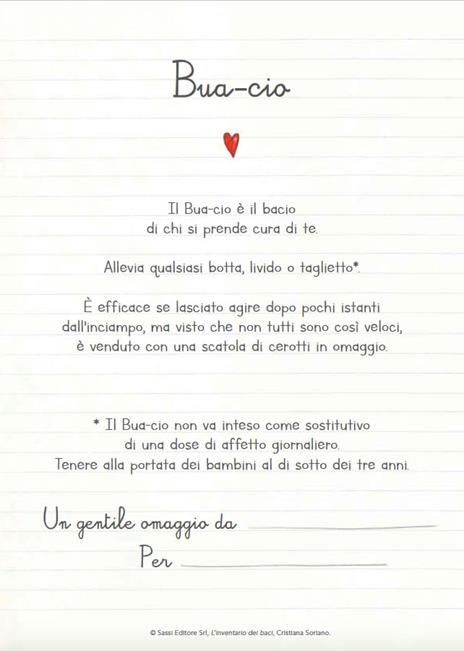 Bua-cio
Il Bua-cio è il bacio
di chi si prende cura di te.
Allevia qualsiasi botta, livido o taglietto*.
È efficace se lasciato agire dopo pochi istanti
dall'inciampo, ma visto che non tutti sono così veloci,
è venduto con una scatola di cerotti in omaggio.
* Il Bua-cio non va inteso come sostitutivo
di una dose di affetto giornaliero.
Tenere alla portata dei bambini al di sotto dei tre anni.
Un gentile omaggio da
Per
© Sassi Editore Srl, L'inventario dei baci, Cristiana Soriano.